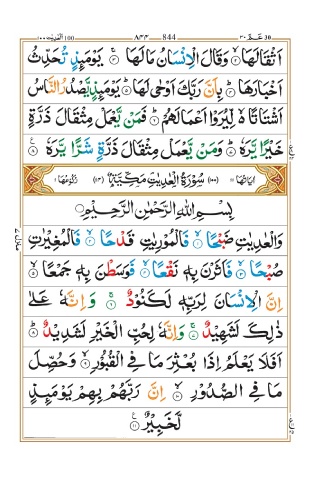 عَمَّ ٣٠ ٨٤٤ 844 العٰدِيٰت ١٠٠
اَثْقَالَهَا ۙ﴿۲﴾ وَقَالَ الْاِنْسَانُ مَا لَهَا ۚ﴿۳﴾ يَوْمَىِٕذٍ تُحَدِّثُ
اَخْبَارَهَا ۙ﴿۴﴾ بِاَنَّ رَبَّكَ اَوْحٰى لَهَا ؕ﴿۵﴾ يَوْمَىِٕذٍ يَّصْدُرُ النَّاسُ
اَشْتَاتًا ۙ۬ لِّيُرَوْا اَعْمَالَهُمْ ؕ﴿۶﴾ فَمَنْ يَّعْمَلْ مِثْقَالَ ذَرَّةٍ
خَيْرًا يَّرَهٗ ؕ﴿۷﴾ وَمَنْ يَّعْمَلْ مِثْقَالَ ذَرَّةٍ شَرًّا يَّرَهٗ ﴿۸﴾
اٰيَاتُهَا ١١ (١٠٠) سُوْرَةُ الْعٰدِيٰتِ مَكِّيَّةٌ (١٤) رُكُوْعُهَا ١
بِسْمِ اللّٰهِ الرَّحْمٰنِ الرَّحِيْمِ
وَالْعٰدِيٰتِ ضَبْحًا ۙ﴿۱﴾ فَالْمُوْرِيٰتِ قَدْحًا ۙ﴿۲﴾ فَالْمُغِيْرٰتِ
صُبْحًا ۙ﴿۳﴾ فَاَثَرْنَ بِهٖ نَقْعًا ۙ﴿۴﴾ فَوَسَطْنَ بِهٖ جَمْعًا ۙ﴿۵﴾
اِنَّ الْاِنْسَانَ لِرَبِّهٖ لَكَنُوْدٌ ۚ﴿۶﴾ وَاِنَّهٗ عَلٰى
ذٰلِكَ لَشَهِيْدٌ ۚ﴿۷﴾ وَاِنَّهٗ لِحُبِّ الْخَيْرِ لَشَدِيْدٌ ؕ﴿۸﴾
اَفَلَا يَعْلَمُ اِذَا بُعْثِرَ مَا فِى الْقُبُوْرِ ۙ﴿۹﴾ وَحُصِّلَ
مَا فِى الصُّدُوْرِ ۙ﴿۱۰﴾ اِنَّ رَبَّهُمْ بِهِمْ يَوْمَىِٕذٍ
لَّخَبِيْرٌ ﴿۱۱﴾